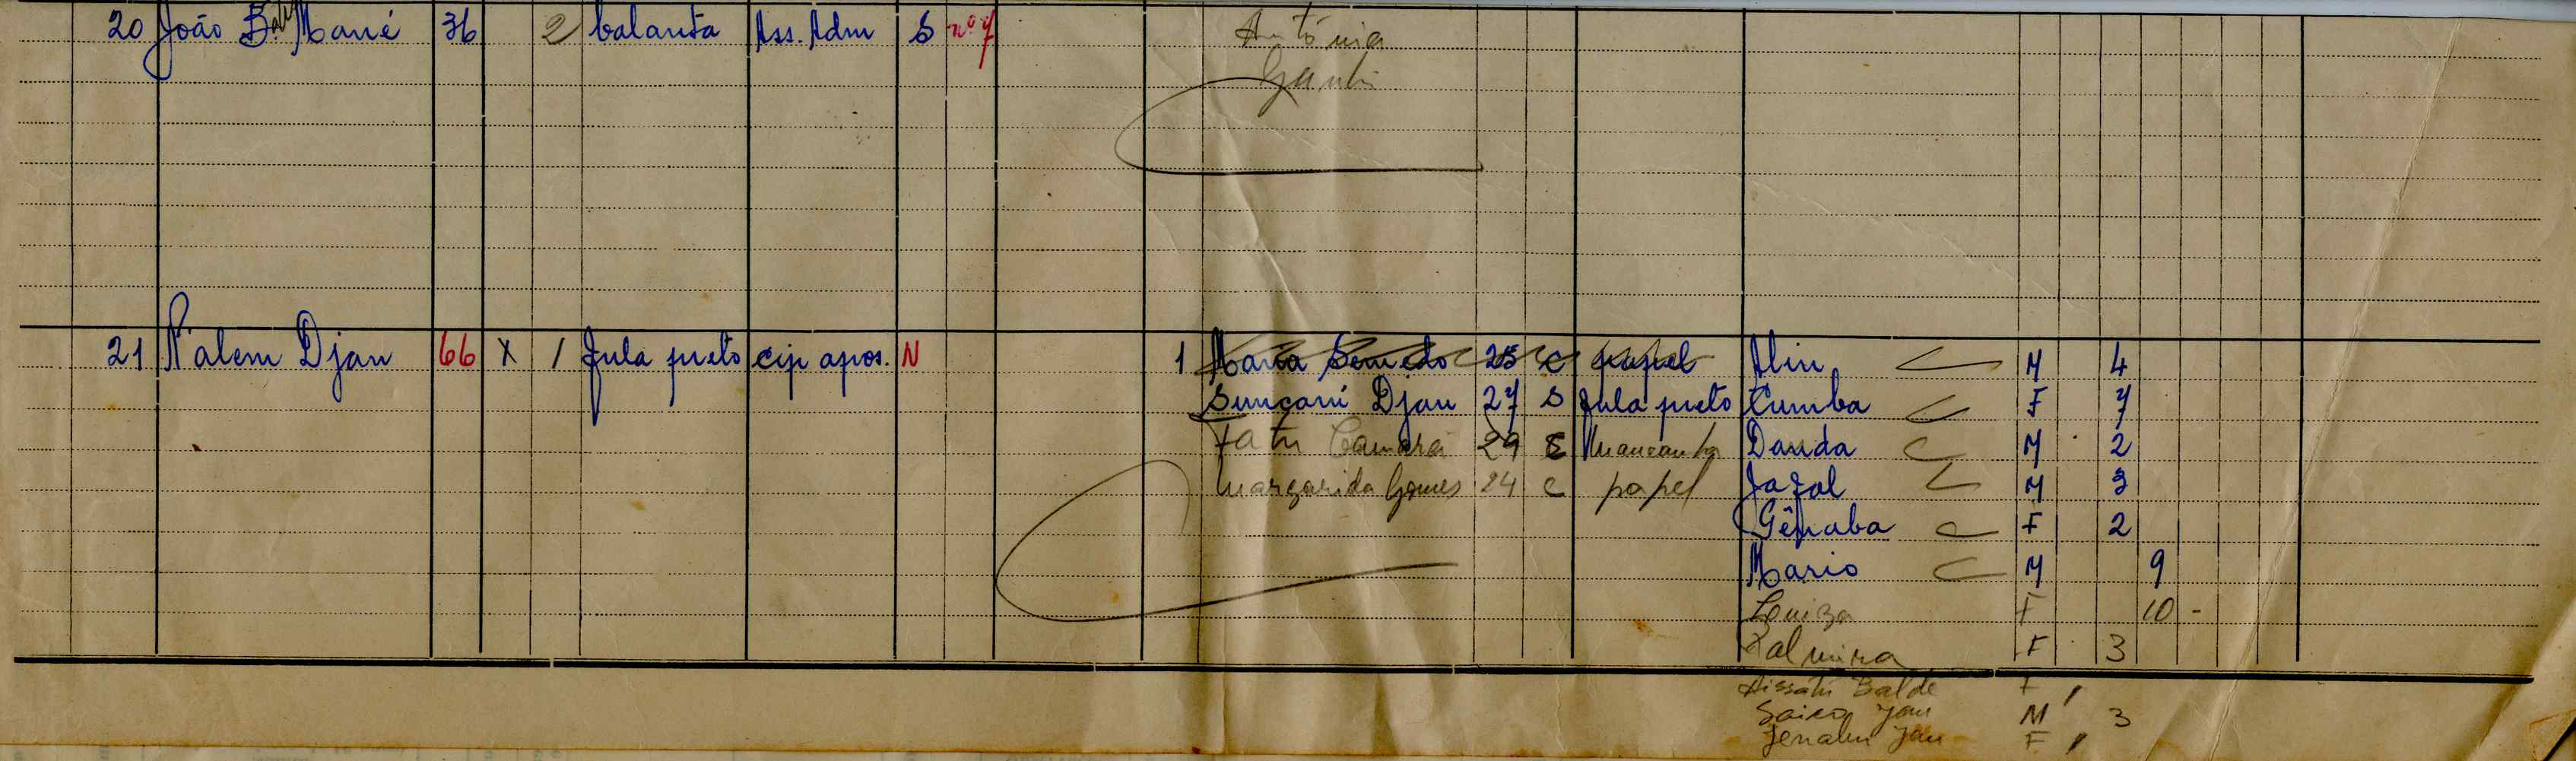 20 João Baly Mané 36 2 balanta Ass. Adm S nº 7 Antónia
Gambi
21 N'alem Djau 66 X 1 fula preto cip apos. N 1 Maria Semedo 25 C papel Aliu M 4
Sunçani Djau 27 S fula preto Cumba F 7
Fatu Camará 29 C mancanha Dauda M 2
Margarida Gomes 24 C papel Jazol M 3
Gênaba F 2
Mario M 9
Louiza F 10 -
Palmira F 3
Aissatú Balde F
Saico Jau M 3
Jenabu Jau F